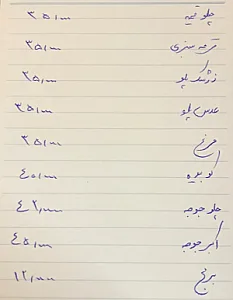 چلو قیمه ۳۵۱۰۰۰
قرمه سبزی ۳۵۱۰۰۰
زرشک پلو ۲۵۱۰۰۰
عدس پلو ۳۵۱۰۰۰
مرغ ۳۵۱۰۰۰
کوبیده ۴۰۱۰۰۰
چلو جوجه ۴۲۱۰۰۰
اکبر جوجه ۴۵۱۰۰۰
برنج ۱۲۱۰۰۰